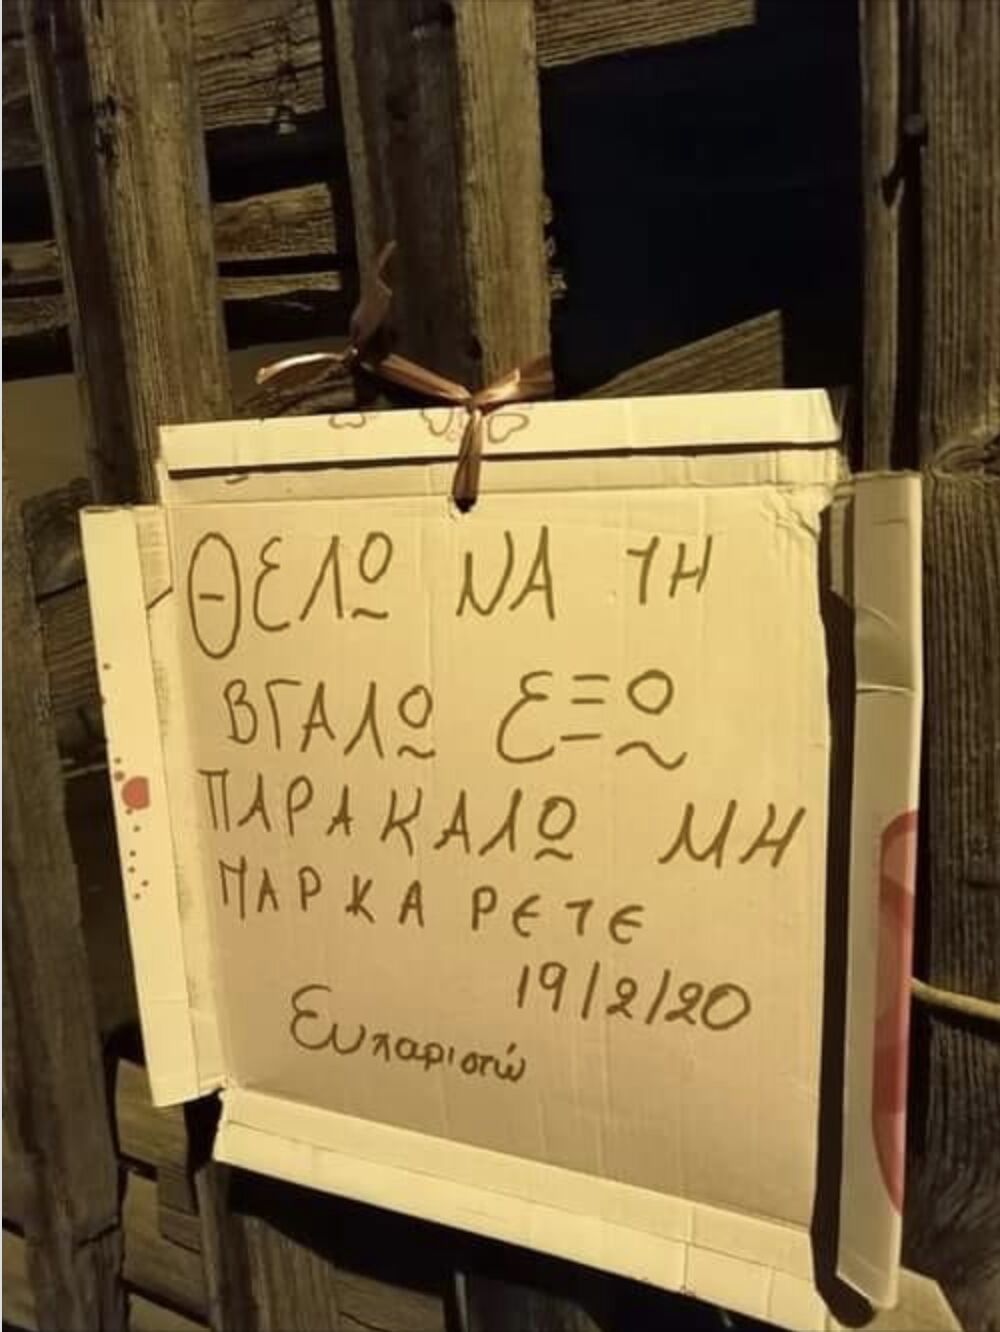 ΘΕΛΩ ΝΑ ΤΗ
ΒΓΑΛΩ ΕΞΩ
ΠΑΡΑΚΑΛΩ ΜΗ
ΠΑΡΚΑΡΕΤΕ
19/2/20
Ευχαριστώ